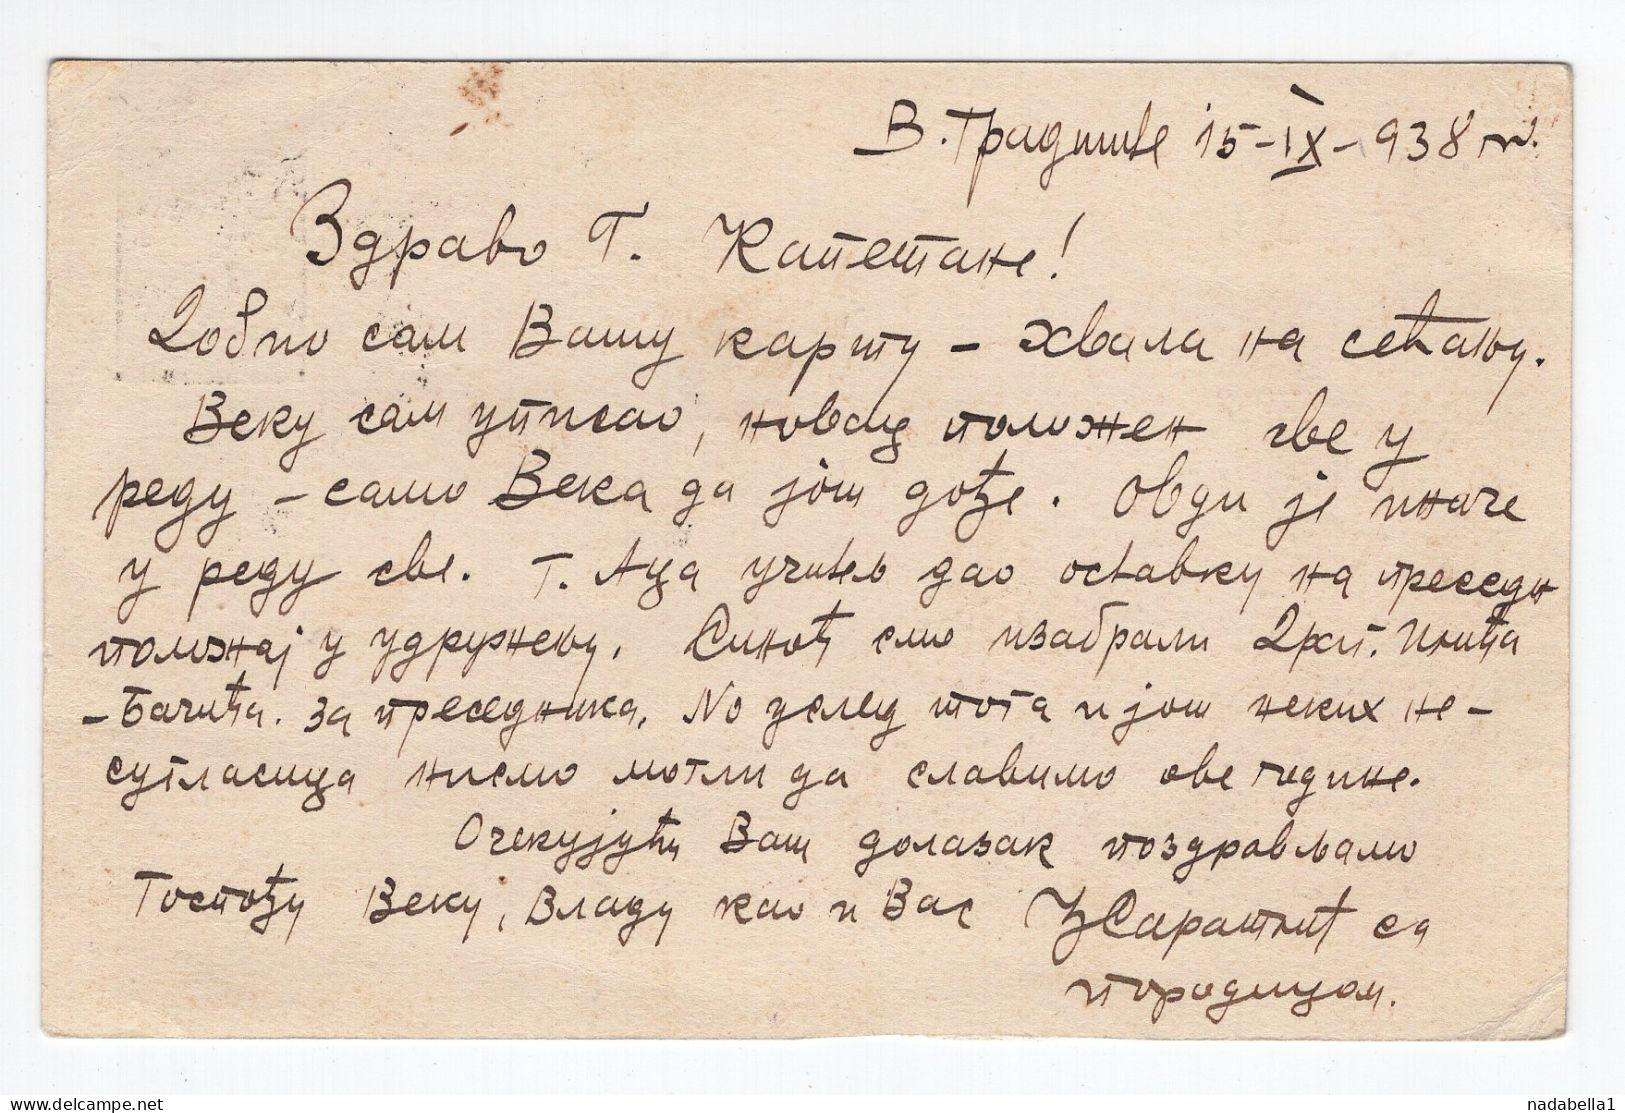 В. Градиште 15-IX-938 г.
Здраво Г. Капетане!
Добио сам Вашу карту – хвала на сећању.
Веку сам уписао, новац положен све у
реду – само Века да још дође. Овди је иначе
у реду све. Г. Аца учитељ дао оставку на председн
положај у удружењу. Синоћ смо изабрали Драг. Илића
– Бачића. за председника. No услед тога и још неких не-
сугласица нисмо могли да славимо ове године.
Очекујући Ваш долазак поздрављамо
Госпођу Веку, Владу као и Вас са
породицом.
nadabella1
www.delcampe.net